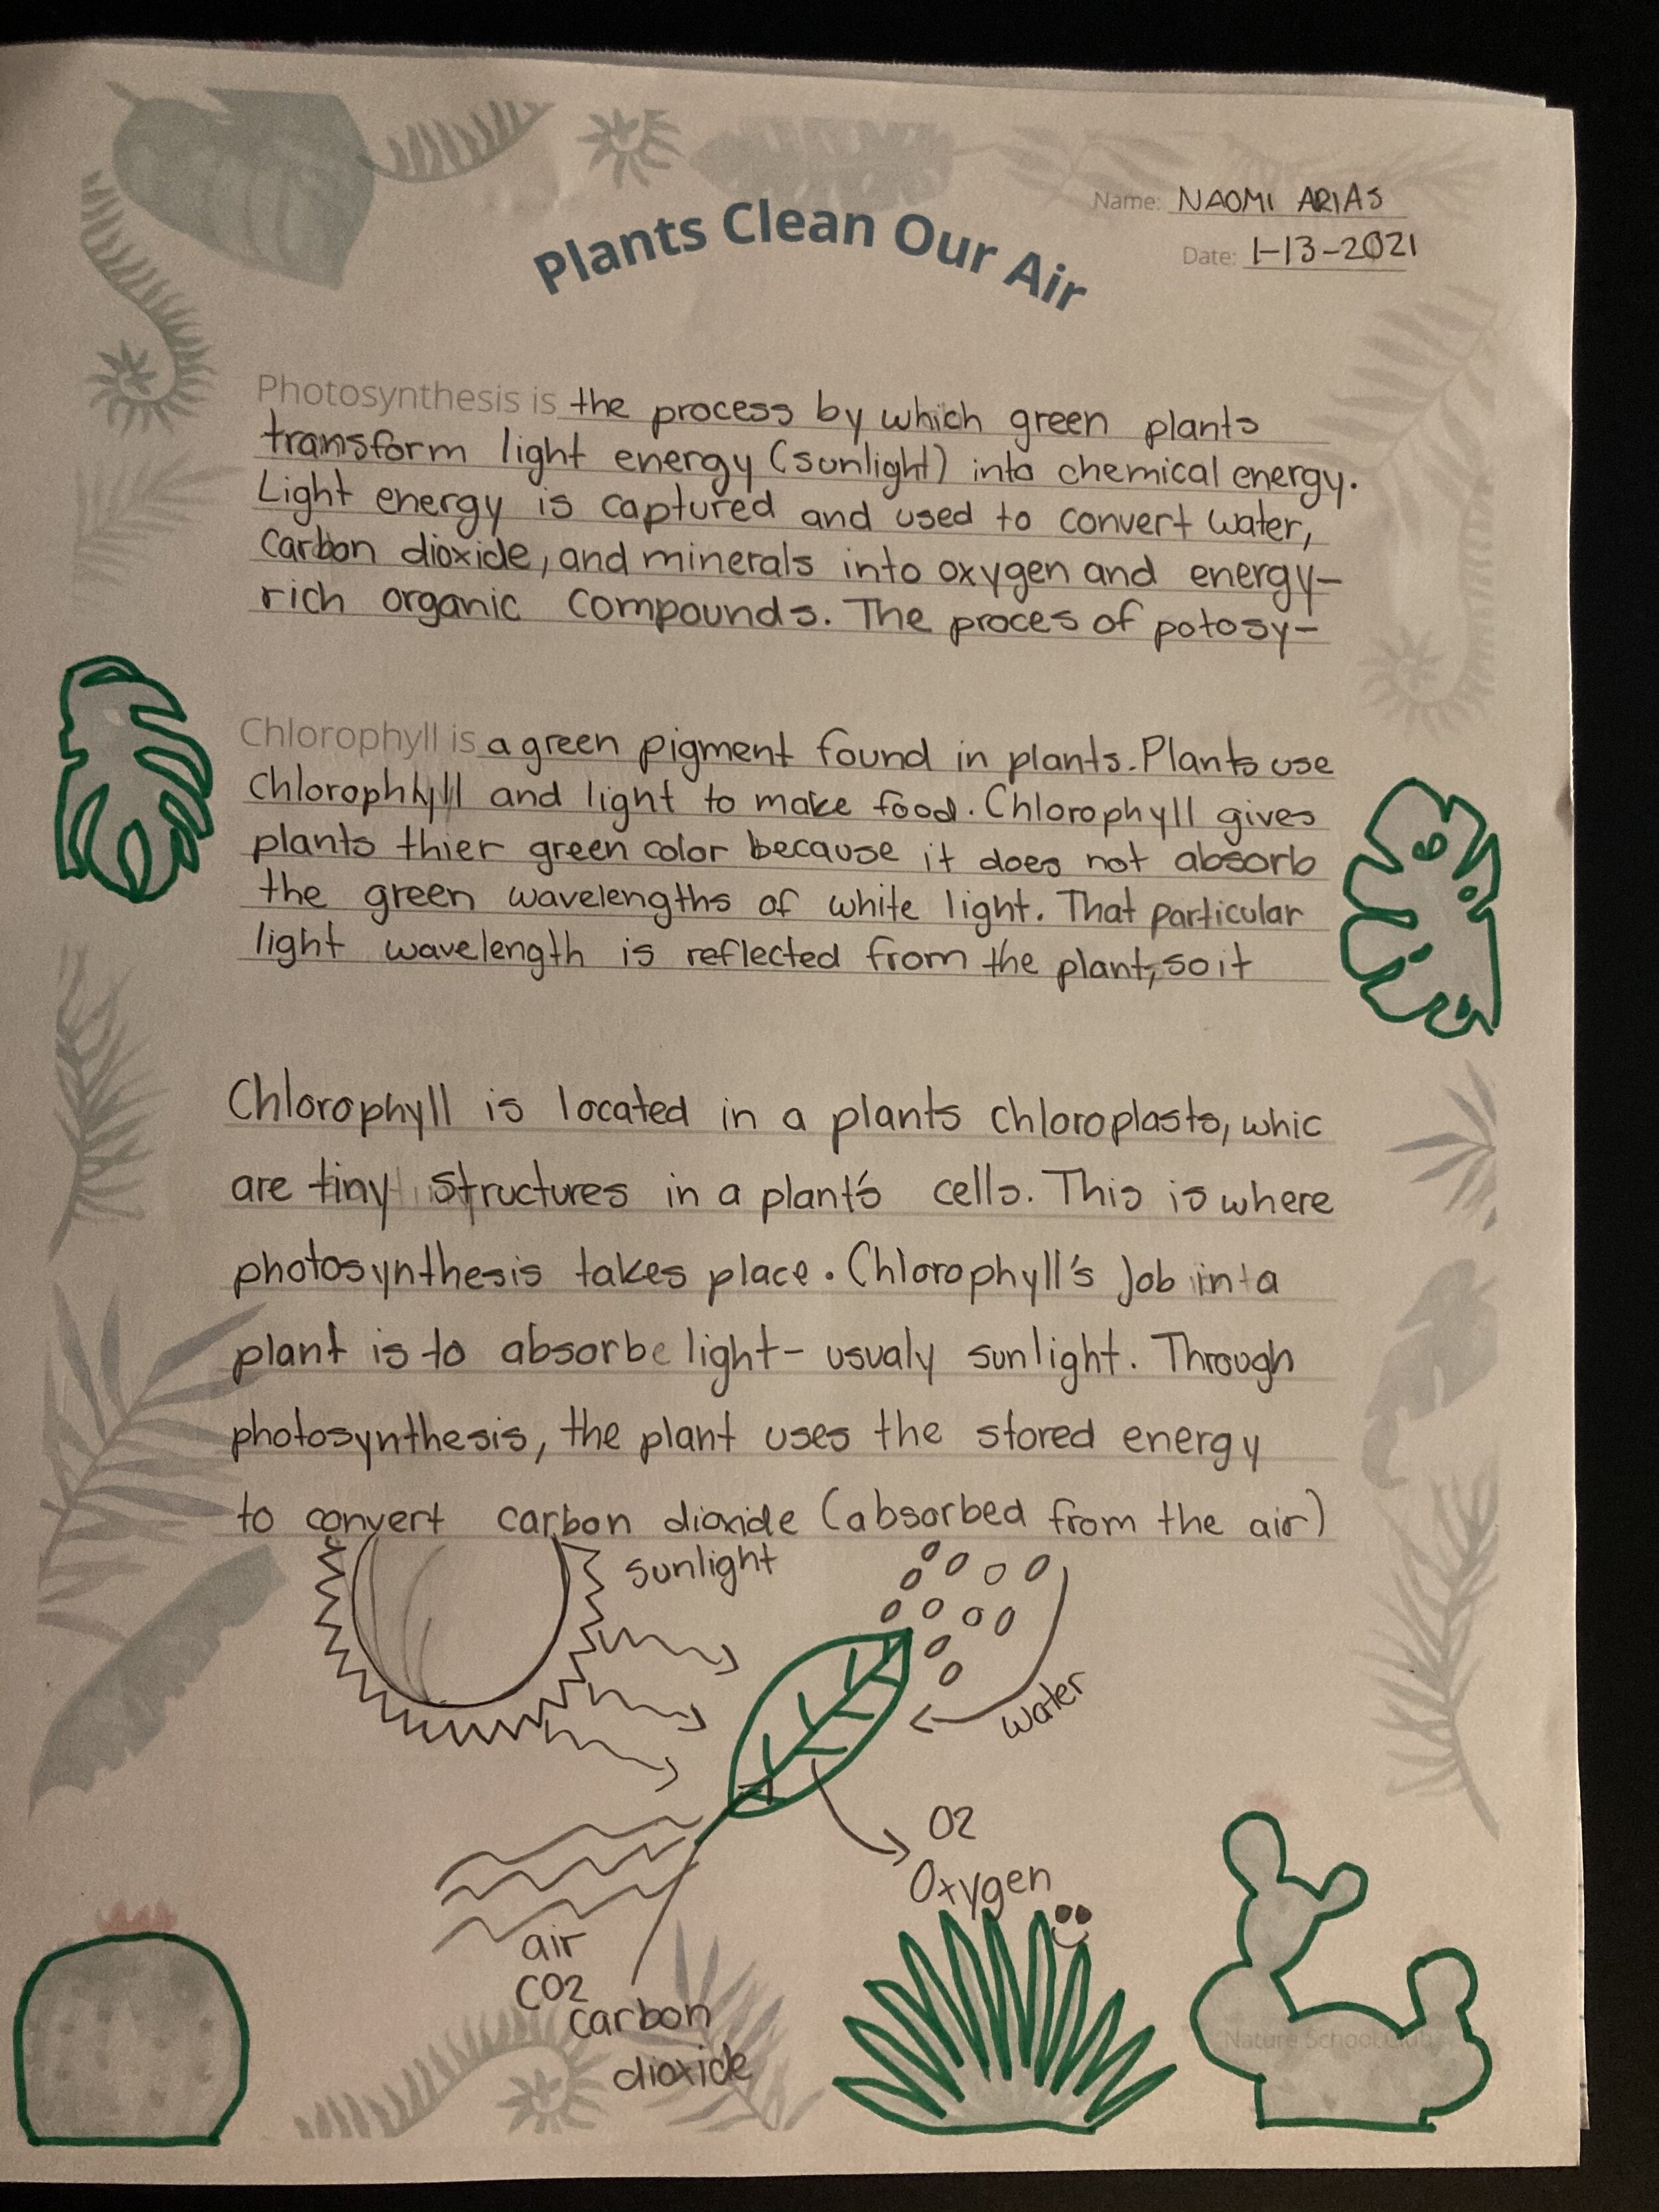 Name: NAOMI ARIAS
Date: 1-13-2021
Plants Clean Our Air
Photosynthesis is the process by which green plants
transform light energy (sunlight) into chemical energy.
Light energy is captured and used to convert water,
carbon dioxide, and minerals into oxygen and energy-
rich organic compounds. The proces of potosy-
Chlorophyll is a green pigment found in plants. Plants use
Chlorophhyll and light to make food. Chlorophyll gives
plants thier green color because it does not absorb
the green wavelengths of white light. That particular
light wavelength is reflected from the plant, so it
Chlorophyll is located in a plants chloroplasts, whic
are tiny structures in a plant's cells. This is where
photosynthesis takes place. Chlorophyll's job in a
plant is to absorbe light- usualy sunlight. Through
photosynthesis, the plant uses the stored energy
to convert carbon dioxide (absorbed from the air)
sunlight
water
O2
Oxygen
air
CO2
carbon
dioxide
Nature School Club